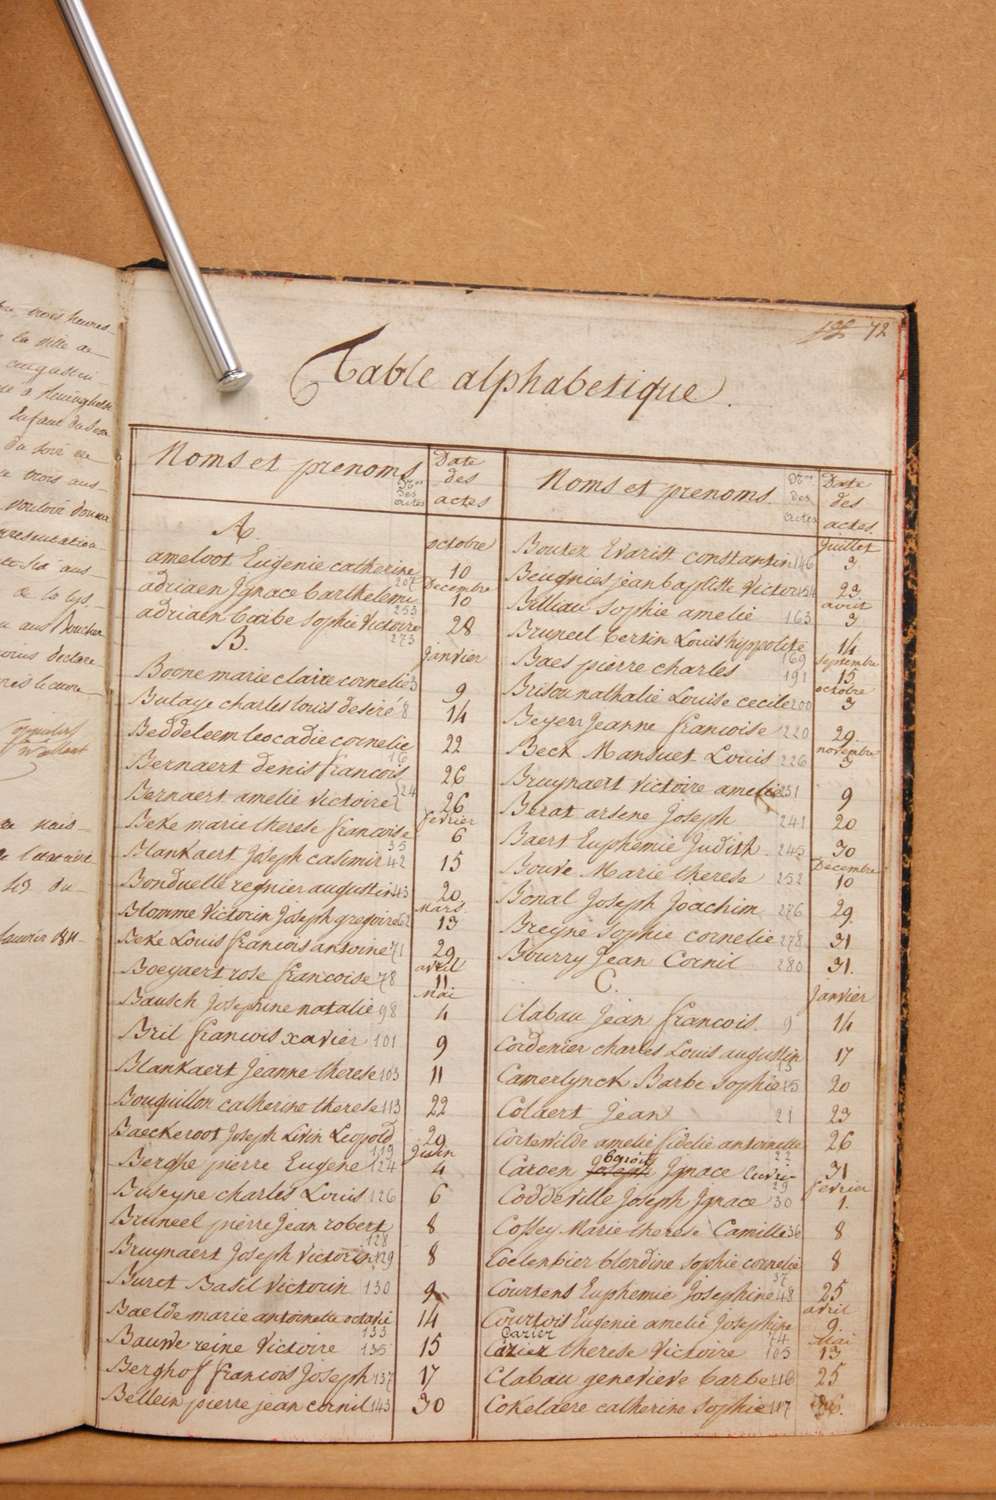 trois heures
la ville de
Enfant du Sexe
du soir en
trois ans
vouloir donner
presentation
de la lys
72
Table alphabetique.
Noms et prenoms
Nros des actes
Date des actes
A.
octobre
ameloot Eugenie catherine 207 10
Decembre
adriaen Ignace barthelemi 253 10
adriaen barbe Sophie Victoire 273 28
B.
janvier
Boone marie claire cornelie 3 9
Butaye charles louis desiré 8 14
Beddeleem leocadie cornelie 16 22
Bernaert denis francois 26
Bernaert amelie Victoire 26
fevrier
Beke marie therese francoise 35 6
Blankaert Joseph casimir 42 15
Bonduelle regnier augustin 43 20
Mars
Blomme Victorin Joseph gregoire 62 13
Beke Louis francois antoine 71 29
avril
Boeyaert rose francoise 78 11
Mai
Bausch Josephine natalie 98 4
Bril francois xavier 101 9
Blankaert Jeanne therese 103 11
Bouquillon catherine therese 113 22
Baeckeroot Joseph Livin Leopold 119 29
Juin
Berghe pierre Eugene 124 4
Buseyne charles Louis 126 6
Bruneel pierre Jean robert 128 8
Bruynaert Joseph Victorin 129 8
Buret Basil Victorin 130 9
Baelde marie antoinette octavi 133 14
Bauwe reine Victoire 135 15
Berghof francois Joseph 137 17
Bellein pierre jean cornil 143 30
Noms et prenoms.
Nros des actes
Date des actes
Juillet
Boutez Evarist constantin 146 3
Beugnies jean baptiste Victor 154 23
aout
Billiau Sophie amelie 163 3
Bruneel bertin Louis hyppolite 169 14
Septembre
Baes pierre charles 191 15
octobre
Brisou nathalie Louise cecile 200 3
Beyen Jeanne francoise 220 29
novembre
Beck Mansuet Louis 226 5
Bruynaert Victoire amelie 231 9
Berat arsene Joseph 241 20
Baert Euphemie Judith 245 30
Decembre
Bouve Marie therese 252 10
Bonal Joseph Joachim 276 29
Breyne Sophie cornelie 278 31
Bourry Jean Cornil 280 31.
C.
Janvier
Clabau Jean francois. 9 14
Cordenier charles Louis augustin 13 17
Camerlynck Barbe Sophie 15 20
Colaert Jean 21 23
Cortewilde amelie fidelie antoinette 22 26
Caroen Joseph Ignace 29 31
fevrier
Coddeville Joseph Ignace 30 1.
Coffey Marie therese Camille 36 8
Coelenbier blondine Sophie cornelie 37 8
Courtens Euphemie Josephine 48 25
avril
Courtois Eugenie amelie Josephine 74 9
Mai
Cazier
Cazier therese Victoire 105 13
Clabau genevieve barbe 116 25
Cokelaere catherine Sophie 117 26.